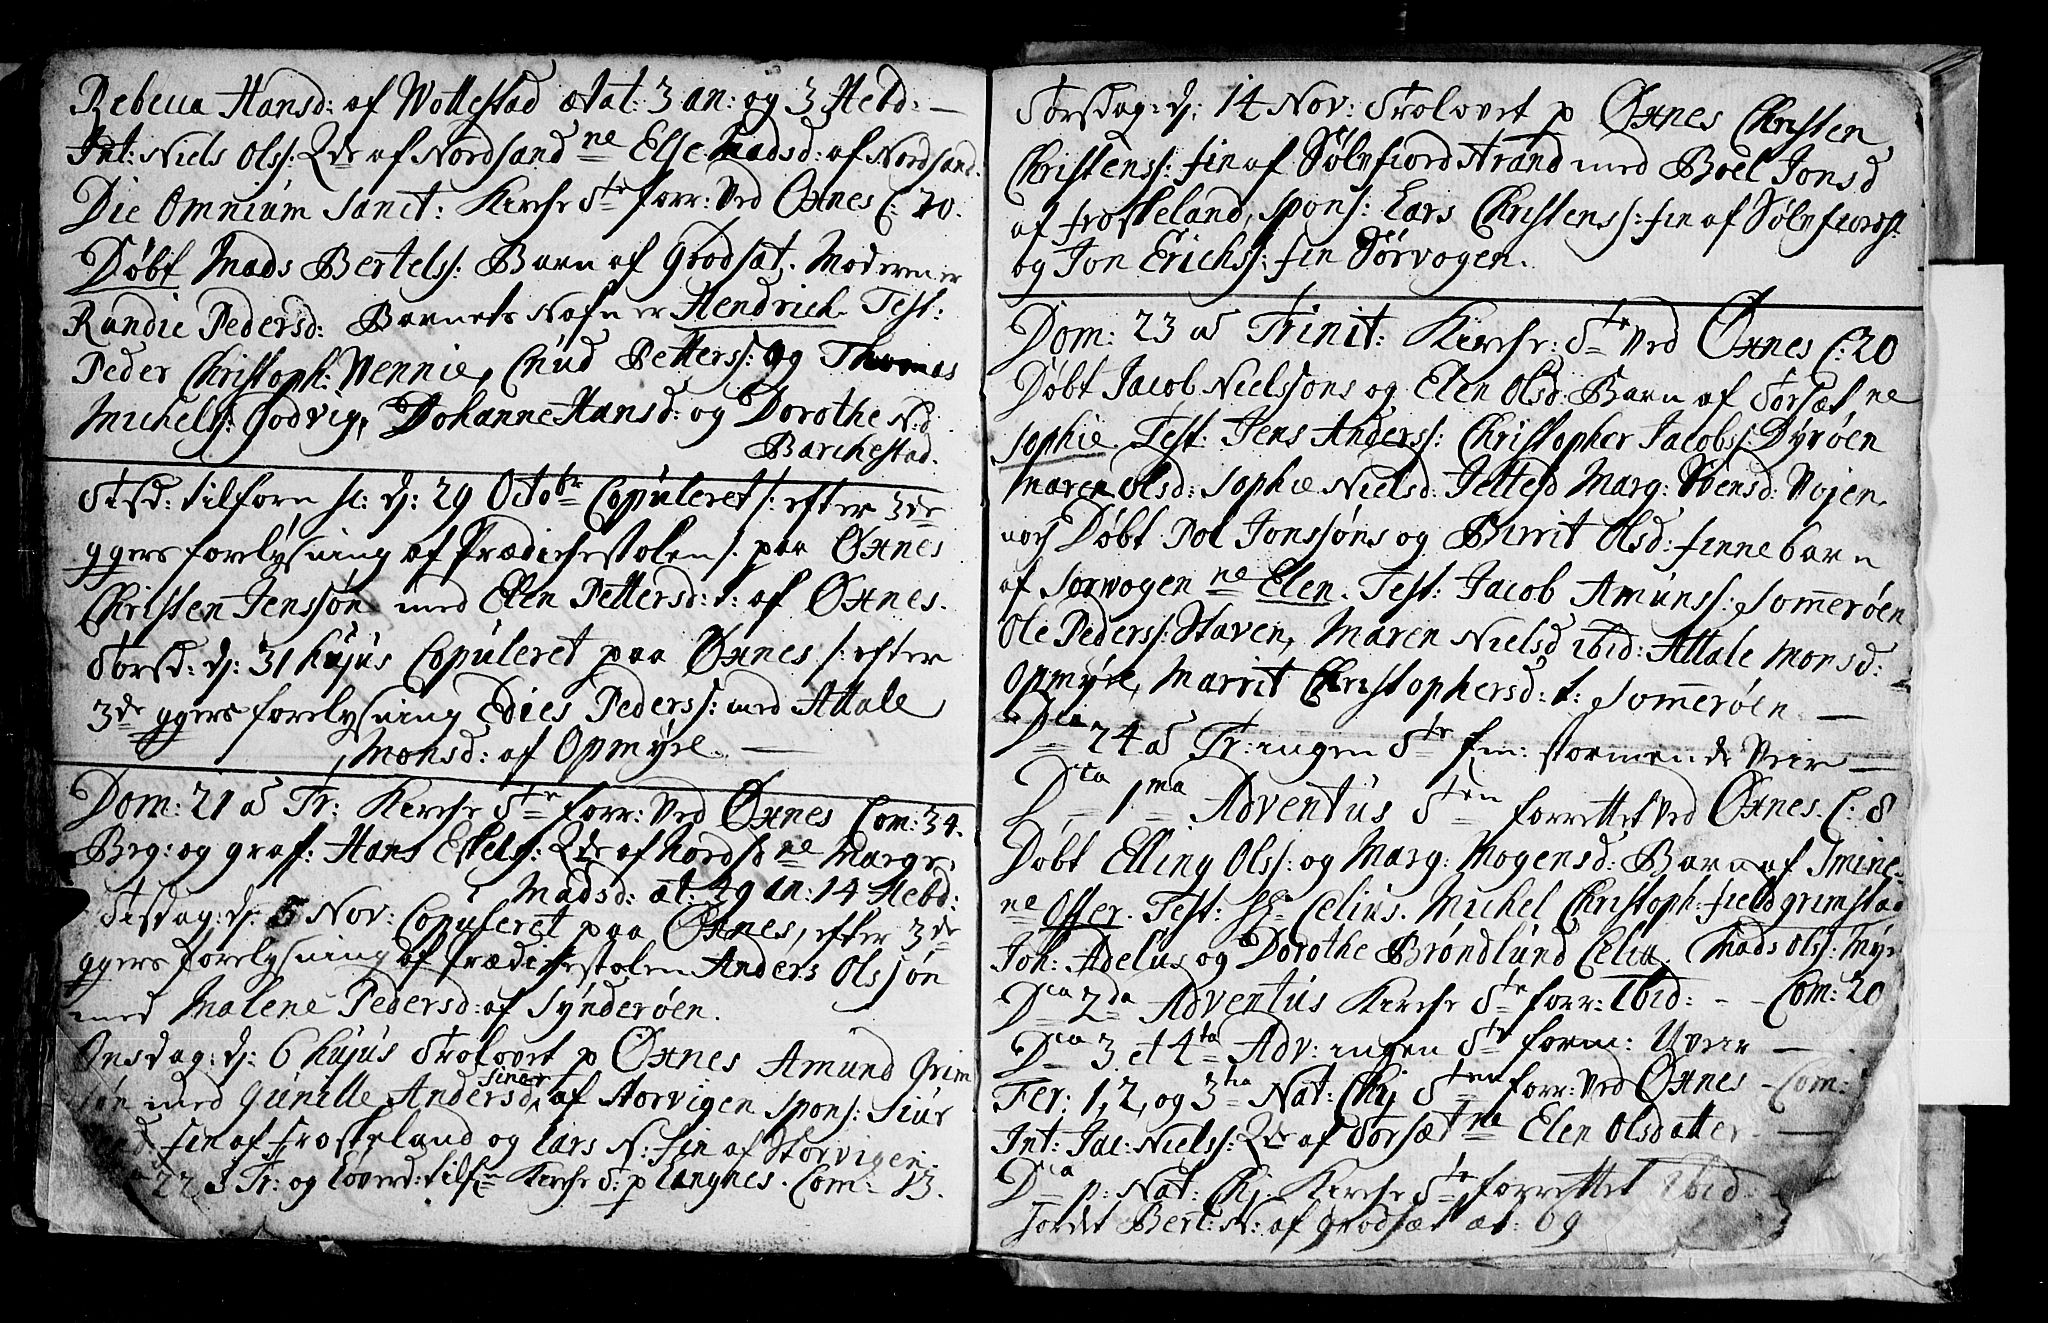 Rebecca Hansd: af Wottestad ætat: 3 an: og 3 Hebd: —
Int: Niels Olss: Qde af Nordsand ne Else Madsd: af Nordsand.
Die Omnium Sanct: Kirche Ste forr: Ved Øxnes C: 20.
Døbt Mads Bertelss: Barn af Grodsat. Moderen er
Randie Pedersd: Barnets Nafn er Hendrich. Test:
Peder Christoph: Vennie, Cnud Petterss: og Thomas
Michels: Godvig, Johanne Hansd: og Dorothe N:d
Barchestad.
Tisd: tilforn sc: d: 29 Octobr Copuleret /: efter 3de
ggers forelysning af Prædichestolen /. paa Øxnes
Christen Jenssøn med Elen Pettersd: t: af Øxnes.
Torsd: d: 31 hujus Copuleret paa Øxnes /: efter
3de ggers forelysning Edies Pederss: med Attale
Monsd: af Opmyre. —
Dom: 21 a Tr: Kirche Ste forr: Ved Øxnes Com: 34.
Beg: og graf: Hans Eskels: Qde af Nordsd ne Margr:
Madsd: æt: 49 an: 14 Hebd:
Tisdag: d: 5 Nov: Copuleret paa Øxnes, efter 3de
ggers forelysning af Prædichestolen Anders Olssøn
med Malene Pedersd: af Synderøen.
Onsdag: d: 6 hujus Trolovet p Øxnes Amund Grim
søn med Gunille Andersd: af Storvigen Spons: Siur
fin af Froskeland og Lars N: fin af Storvigen.
22 a Tr: og Loverd: tilfn Kirche S: p Langnes. Com: 13.
Torsdag: d: 14 Nov: Trolovet p Øxnes Christen
Christenss: fin af Sølnfiord Strand med Boel Jonsd
af Froskeland, Spons: Lars Christenss: fin af Sølnfiordst
og Jon Erichs: fin Sørvogen.
Dom: 23 a Trinit: Kirche: Ste Ved Øxnes C: 20
Døbt Jacob Nielssøns og Elen Olsd: Barn af Torsæt ne
Sophie. Test: Jens Anderss: Christopher Jacobs: Dyrøen
Maren Olsd: Sophie Nielsd: Marg: Svensd: Vojen.
noch Døbt Pol Jonssøns og Birrit Olsd: finne barn
af Sorwogen ne Elen. Test: Jacob Amunss: Sommerøen
Ole Pederss: Staven, Maren Nielsd ibid: Attale Monsd:
Opmyre, Marrit Christophersd: t: Sommerøen —
Dca 24 a Tr: ingen Ste fm: stormende Veir —
Dca 1ma Adventus Sten forrettet Ved Øxnes. C: 8
Døbt Elling Olss: og Marg: Mogensd: Barn af Smine-
ne Offer. Test: Hr Celius. Michel Christoph: field grimstad
Joh: Adelus og Dorothe Brøndlund Celia. Mads Ols: Myr
Dca 2da Adventus Kirche Ste forr: Ibid: - - Com: 20
Dca 3 et 4ta Adv: ingen Ste form: Uveir —
Fer: 1, 2, og 3tia Nat: Chj Sten forr: Ved Øxnes - Com:
Int: Jac: Nielss: Qde af Torsæt na Elen Olsdatter —
Dca p: Nat: Chj. Kirche Ste forrettet Ibid.
Jordet Bert: N: af Grodsæt æt: 69